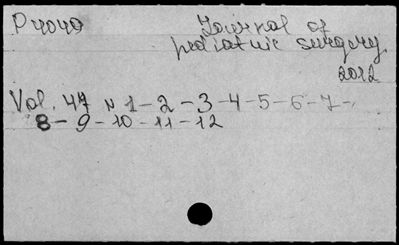 P4040
Journal of
pediatric surgery
2012
Vol. 47 N 1-2-3-4-5-6-7-
8-9-10-11-12